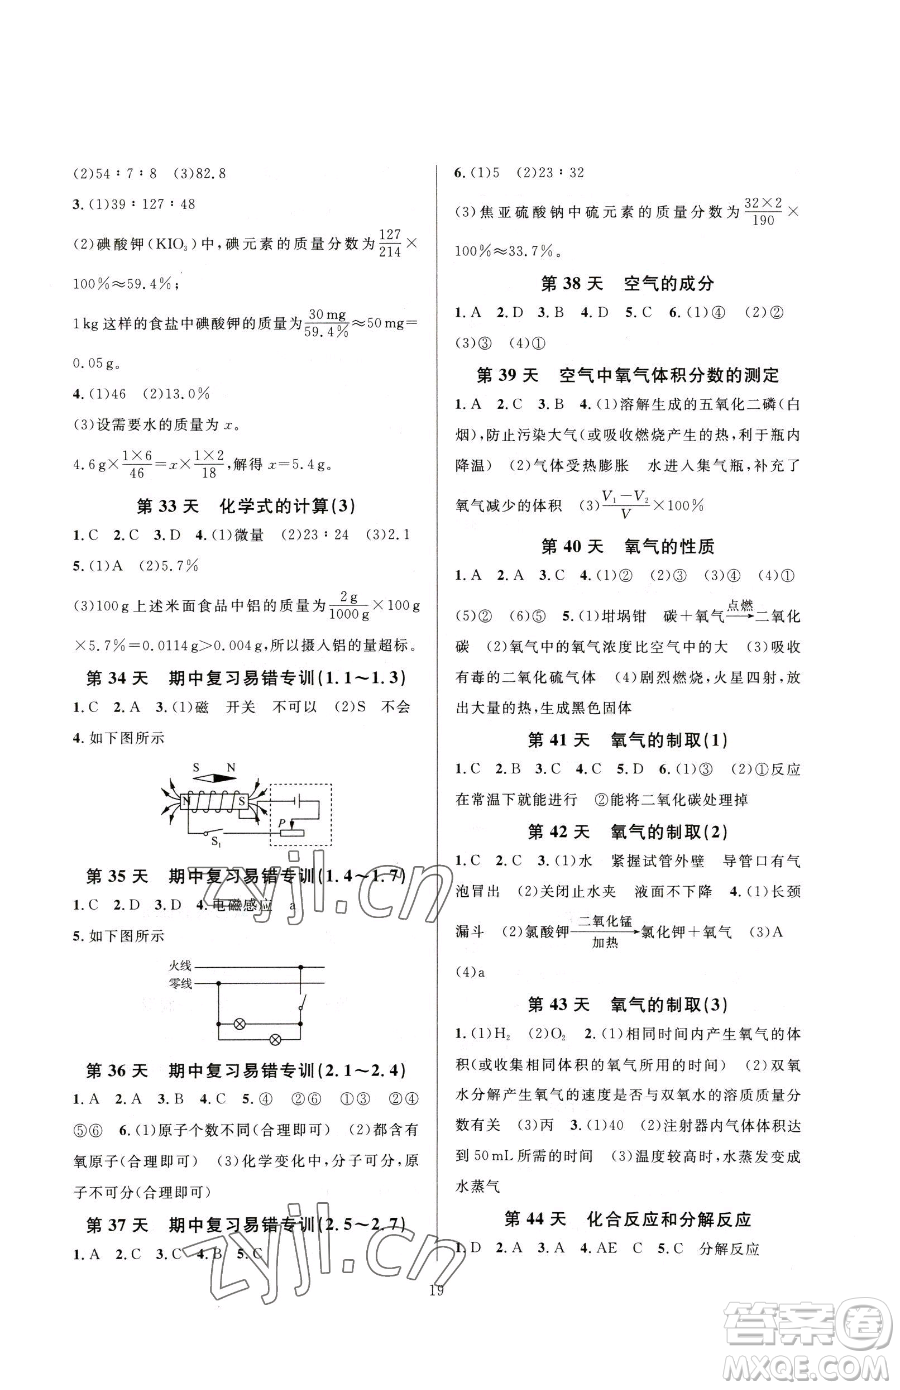 (2)54∶7∶8　(3)82.8
3. (1)39∶127∶48
(2)碘酸钾(KIO₃)中,碘元素的质量分数为127/214×
100%≈59.4%;
1 kg 这样的食盐中碘酸钾的质量为30 mg/59.4%≈50 mg=
0.05 g。
4. (1)46　(2)13.0%
(3)设需要水的质量为 x。
4.6 g×1×6/46=x×1×2/18,解得 x=5.4 g。
第 33 天　化学式的计算(3)
1. C　2. C　3. D　4. (1)微量　(2)23∶24　(3)2.1
5. (1)A　(2)5.7%
(3)100 g 上述米面食品中铝的质量为2 g/1000 g×100 g
×5.7%=0.0114 g>0.004 g,所以摄入铝的量超标。
第 34 天　期中复习易错专训(1.1～1.3)
1. C　2. A　3. (1)磁　开关　不可以　(2)S　不会
4. 如下图所示
S　N
N　S
P
S₁
第 35 天　期中复习易错专训(1.4～1.7)
1. C　2. D　3. D　4. 电磁感应　a
5. 如下图所示
火线
零线
第 36 天　期中复习易错专训(2.1～2.4)
1. A　2. A　3. B　4. C　5. ④　②　⑥　①　④
⑤⑥　6. (1)原子个数不同(合理即可)　(2)都含有
氧原子(合理即可)　(3)化学变化中,分子可分,原
子不可分(合理即可)
第 37 天　期中复习易错专训(2.5～2.7)
1. A　2. C　3. C　4. B　5. C
6. (1)5　(2)23∶32
(3)焦亚硫酸钠中硫元素的质量分数为32×2/190×
100%≈33.7%。
第 38 天　空气的成分
1. A　2. D　3. B　4. D　5. C　6. (1)④　(2)②
(3)③　(4)①
第 39 天　空气中氧气体积分数的测定
1. A　2. C　3. B　4. (1)溶解生成的五氧化二磷(白
烟),防止污染大气(或吸收燃烧产生的热,利于瓶内
降温)　(2)气体受热膨胀　水进入集气瓶,补充了
氧气减少的体积　(3)V₁−V₂/V×100%
第 40 天　氧气的性质
1. A　2. D　3. C　4. (1)②　(2)③　(3)④　(4)①
(5)②　(6)⑤　5. (1)坩埚钳　碳+氧气 点燃→ 二氧化
碳　(2)氧气中的氧气浓度比空气中的大　(3)吸收
有毒的二氧化硫气体　(4)剧烈燃烧,火星四射,放
出大量的热,生成黑色固体
第 41 天　氧气的制取(1)
1. C　2. B　3. C　4. C　5. D　6. (1)③　(2)①反应
在常温下就能进行　②能将二氧化碳处理掉
第 42 天　氧气的制取(2)
1. C　2. C　3. (1)水　紧握试管外壁　导管口有气
泡冒出　(2)关闭止水夹　液面不下降　4. (1)长颈
漏斗　(2)氯酸钾 二氧化锰/加热→ 氯化钾+氧气　(3)A
(4)a
第 43 天　氧气的制取(3)
1. (1)H₂　(2)O₂　2. (1)相同时间内产生氧气的体
积(或收集相同体积的氧气所用的时间)　(2)双氧
水分解产生氧气的速度是否与双氧水的溶质质量分
数有关　(3)丙　3. (1)40　(2)注射器内气体体积达
到 50 mL 所需的时间　(3)温度较高时,水蒸发变成
水蒸气
第 44 天　化合反应和分解反应
1. D　2. A　3. D　4. AE　C　5. C　分解反应
19
zyjl.cn
zyjl.cn
答案圈
MXQE.COM